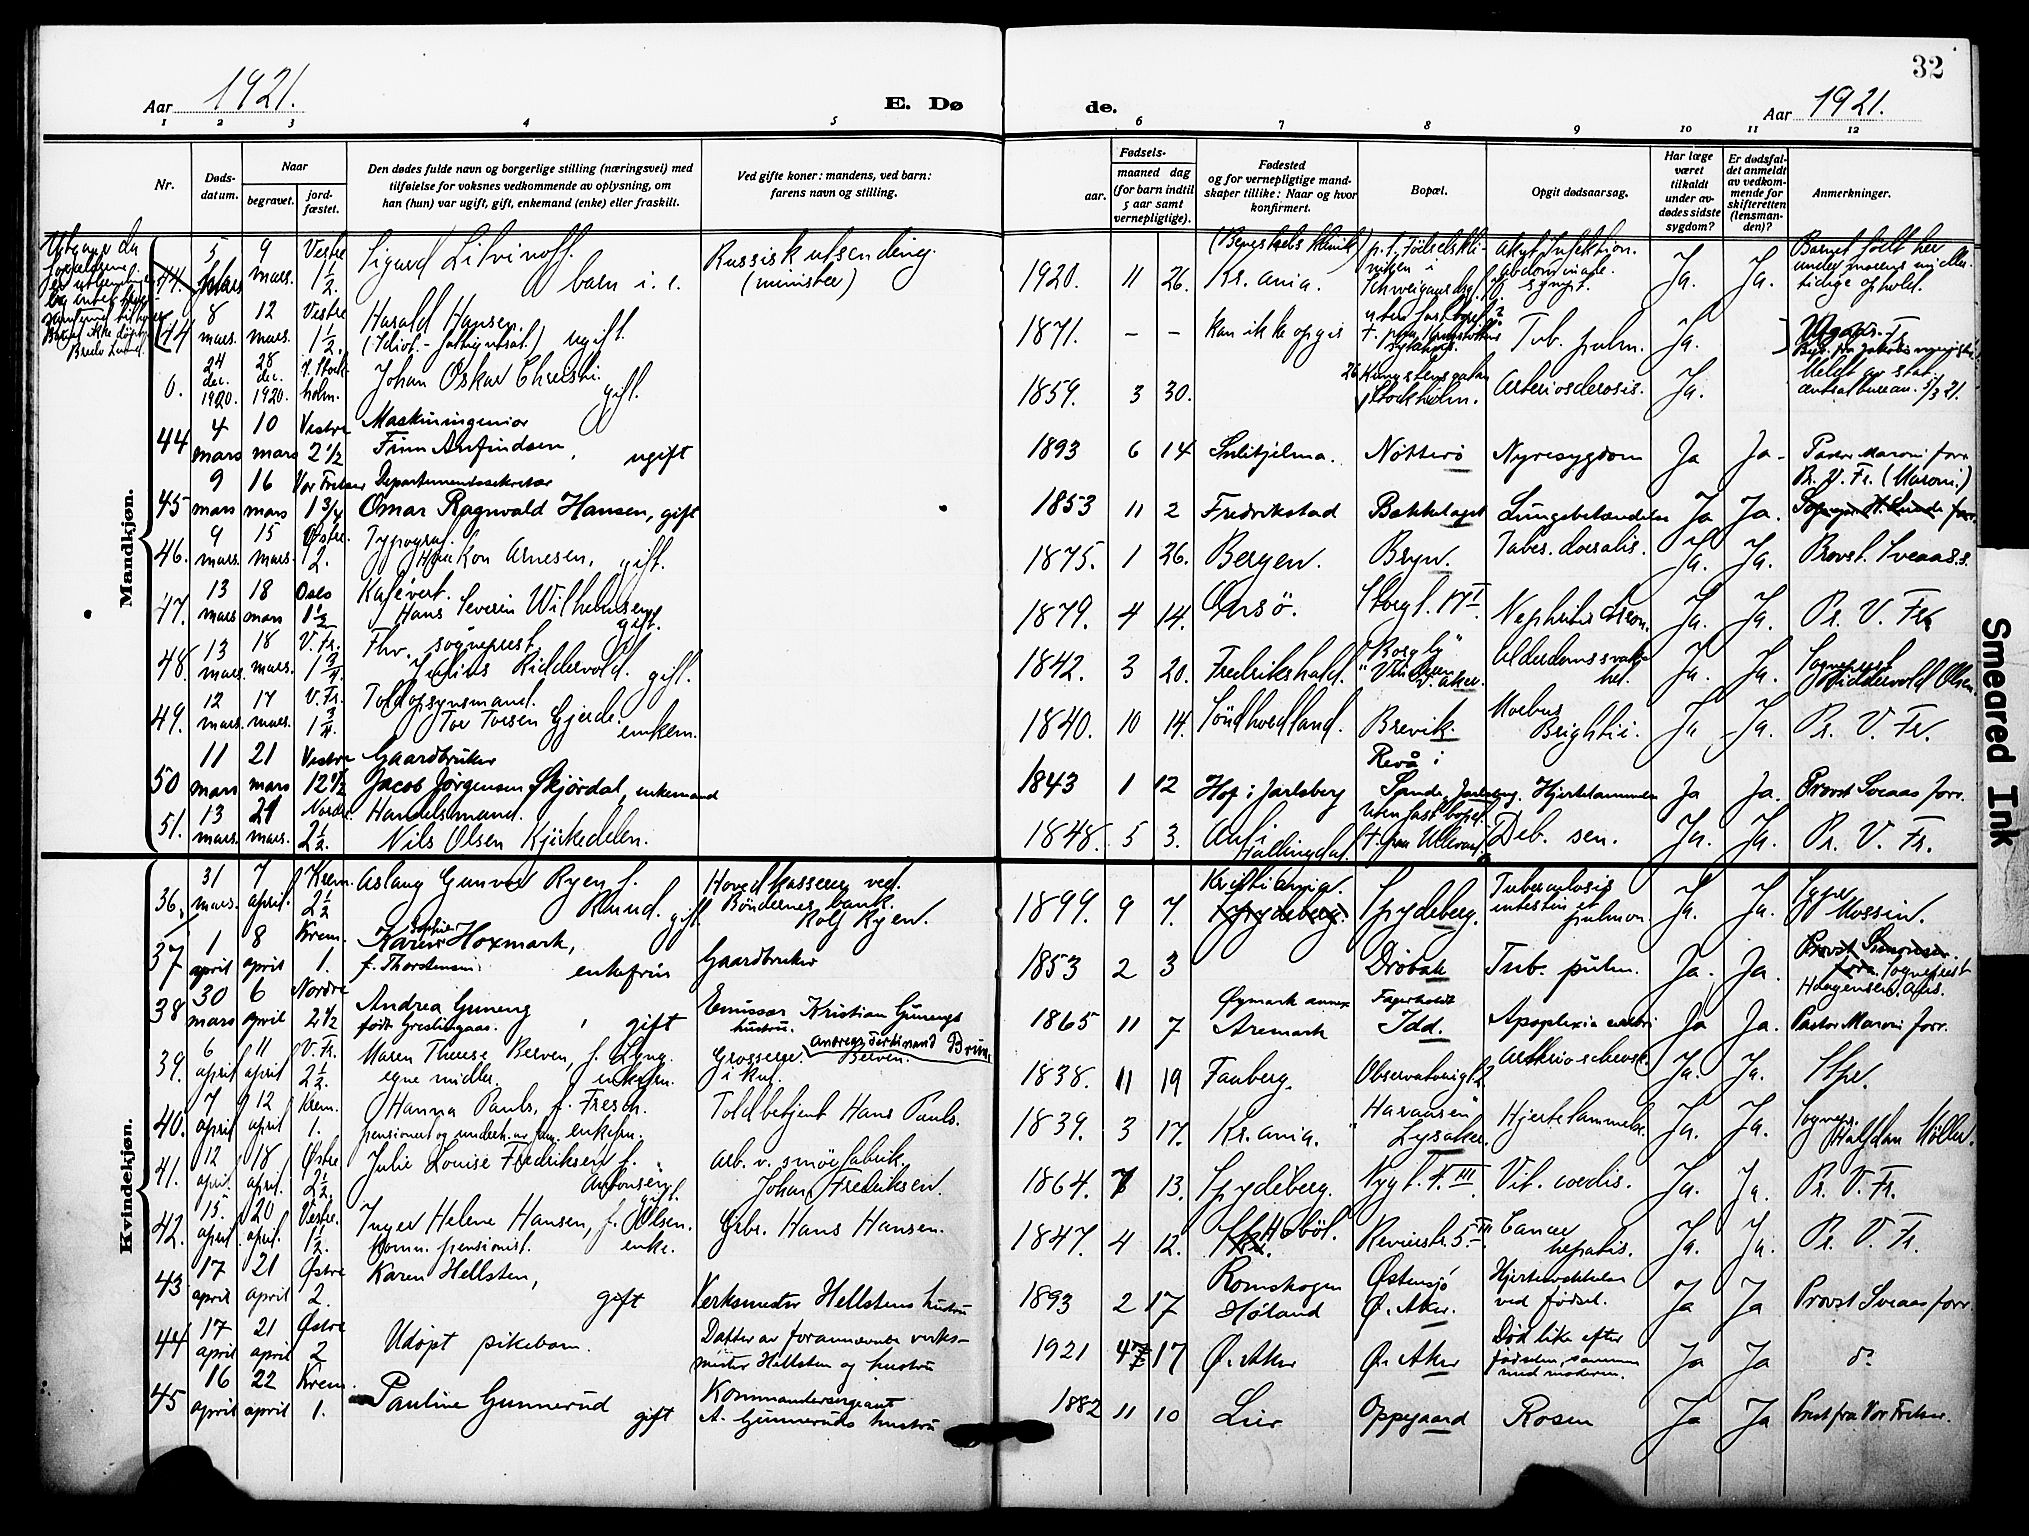 32
Aar 1921.
E. Døde.
Aar 1921.
1 2 3 4 5 6 7 8 9 10 11 12
Nr.
Dødsdatum.
Naar
begravet.
jordfæstet.
Den dødes fulde navn og borgerlige stilling (næringsvei) med
tilføielse for voksnes vedkommende av oplysning, om
han (hun) var ugift, gift, enkemand (enke) eller fraskilt.
Ved gifte koner: mandens, ved barn:
farens navn og stilling.
Fødsels-
aar.
maaned dag
(for barn indtil
5 aar samt
vernepligtige).
Fødested
og for vernepligtige mand-
skaper tillike: Naar og hvor
konfirmert.
Bopæl.
Opgit dødsaarsag.
Har læge
været
tilkaldt
under av-
dødes sidste
sygdom?
Er dødsfal-
det anmeldt
av vedkom-
mende for
skifteretten
(lensman-
den)?
Anmerkninger.
Mandkjøn.
44. 5 mars 9 mars. Vestre 1½. Sigurd Litvinoff. barn i. e. Russisk utsending. (minister) 1920. 11 26. Kr.ania. akut infektion. Ja. Ja. Barnet født her under morens midler-
tidige ophold.
44 8 mars. 12 mars. Vestre 1½. Harald Hansen. ugift. 1871. – – kan ikke opgis Tub. pulm. Ja.
0. 24 dec. 1920. 28 dec. 1920. Stock-
holm. Johan Oskar Christi. gift. 1859. 3 30. 26 Kungstensgatan Stockholm. Arteriosclerosis. Ja. Meldt av stat. centralbureau. 5/3 21.
44 4 mars 10 mars Vestre 2½ Maskiningeniør Finn Anfindsen, ugift 1893 6 14 Sulitjelma. Nøtterø Nyresygdom Ja Ja. Pastor Maroni forr.
45 9 mars 16 mars Vor Frelser 1¾ Departementssekretær Omar Ragnvald Hansen, gift 1853 11 2 Fredrikstad Bækkelaget Lungebetændelse Ja Ja. Pr. V. Fr. (Maroni.)
46. 9 mars. 15 mars. Østre. 2. Typograf. Haakon Arnesen, gift. 1875. 1 26. Bergen. Bryn. Tabes. dorsalis. Ja. Ja. Provst. Sveaas.
47. 13 mars 18 mars Oslo 1½ Kafévert. Hans Severin Wilhelmsen gift. 1879. 4 14. Onsö. Storgt. 17 I Nephritis chron. Ja. Ja. Pr. V. Fr.
48. 13 mars. 18 mars. V. Fr. 1¾ Fhv. sogneprest Julius Riddervold. gift. 1842. 3 20. Fredrikshald. "Borgly" Vinderen V. Aker. Alderdomssvak-
het. Ja. Ja. Sogneprest Riddervold Olsen.
49. 12 mars. 17 mars. V. Fr. 1¾ Toldopsynsmand. Tor Torsen Gjerde. enkem. 1840. 10 14. Söndhordland. Brevik. Morbus Brightii. Ja Ja. Pr. V. Fr.
50 11 mars 21 mars Vestre 12½ Gaardbruker Jacob Jørgensen Skjørdal, enkemand 1843 1 12 Hof i Jarlsberg Revå i Sande, Jarlsberg. Hjertelammelse Ja Ja. Provst Sveaas forr.
51. 13 mars. 21 mars. Nordre 2½. Handelsmand. Nils Olsen Kjirkedelen. 1848. 5 3. Aal i Hallingdal. Uten fast bopel. Deb. sen. Ja. Ja. Pr. V. Fr.
Kvindekjøn.
36. 31 mars. 7 april. Krem. 2½ Aslaug Gunvor Ryen f. Ruud. gift. Hovedkasserer ved. Bøndernes bank. Rolf Ryen. 1899. 9 7. Kristiania. Spydeberg. Spydeberg. Tuberculosis intestin et pulmon. Ja. Ja. Sgpr. Mossin.
37 1 april 8 april Krem. 1. Karen Hoxmark, f. Thorstensen enkefrue Gaardbruker 1853 2 3 Drøbak Tub. pulm. Ja. Ja.
38 30 mars 6 april Nordre 2½ Andrea Gureng født Greslingaas. gift Emissær Kristian Gurengs hustru. 1865 11 7 Øymark annex Aremark Fagerholdt Idd. Apoplexia cerebri Ja Ja. Pastor Maroni forr.
39. 6 april 11 april V. Fr. 2½. Maren Therese Berven, f. Lyng. egne midler. enkefru. Grosserer Andreas Ferdinand Bruun Berven. 1838. 11 19 Faaberg. Observatoriegt. 2 Arteriosclerosis. Ja. Ja. Stpr.
40. 7 april 12 april Krem. 1. Hanna Pauls, f. Fresch. enkefru. Toldbetjent Hans Pauls. 1839. 3 17. Kr.ania. Lysaker. Hjertelammelse. Ja. Ja. Sognepr. Halfdan Møller.
41. 12 april. 18 april. Østre 2½. Julie Louise Fredriksen f. Antonsen. gift. Arb. v. smörfabrik. Johan Fredriksen. 1864. 7 13. Spydeberg. Nygt. 4. III Vit. cordis. Ja. Ja. Pr. V. Fr.
42. 15. april. 20 april. Vestre. 1½. Inger Helene Hansen, f. Olsen. Komm. pensionist. enke. Gebr. Hans Hansen. 1847. 4 12. Hobøl. Revierstr. 5 III. Cancer hepatis. Ja. Ja. Pr. V. Fr.
43 17 april 21 april Østre 2. Karen Hellsten, gift Verksmester Hellstens hustru 1893 2 17 Romskogen Høland Østensjø Ø. Aker. Hjerteonde ved fødsel. Ja Ja Provst Sveaas forr.
44 17 april 21 april Østre 2 Udøpt pikebarn. Datter av forannævnte verks-
mester Hellsten og hustru 1921 4 17 Ø. Aker Ø. Aker Død like efter fødselen, sammen med moderen. Ja Ja do
45 16 april 22 april Krem. 1. Pauline Gunnerud gift Kommandersergeant A. Gunneruds hustru 1882 11 10 Lier Oppegaard Rosen Ja Ja Prest fra Vor Frelser.
Smeared Ink